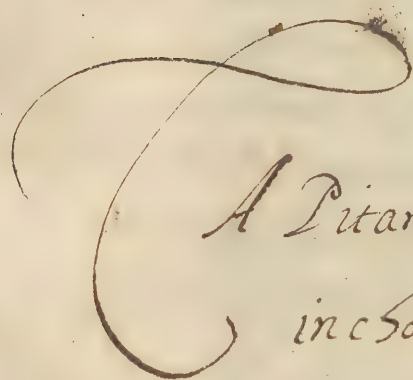 A Pitar
incho